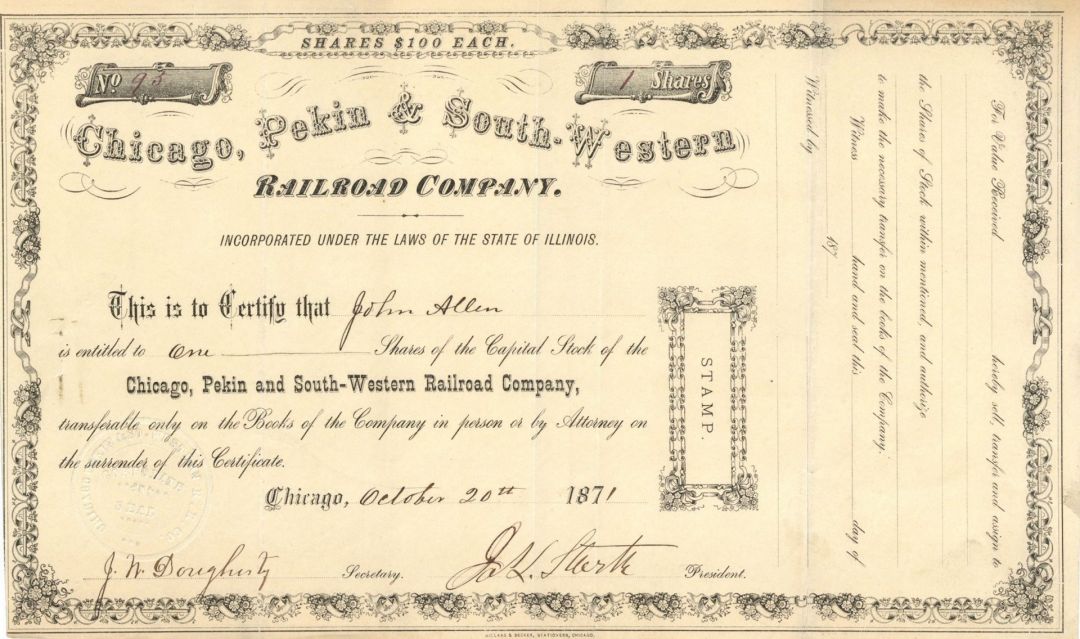 SHARES $100 EACH.
No 95
1 Shares
Chicago, Pekin & South-Western
RAILROAD COMPANY.
INCORPORATED UNDER THE LAWS OF THE STATE OF ILLINOIS.
This is to Certify that John Allen
is entitled to One Shares of the Capital Stock of the
Chicago, Pekin and South-Western Railroad Company,
transferable only on the Books of the Company in person or by Attorney on
the surrender of this Certificate.
Chicago, October 20th 1871
J. W. Dougherty Secretary.
President.
STAMP.
For Value Received hereby sell, transfer and assign to
the Shares of Stock within mentioned, and authorize
to make the necessary transfer on the books of the Company.
Witness hand and seal this day of
187
Witnessed by
CULVER & BECKER, STATIONERS, CHICAGO.